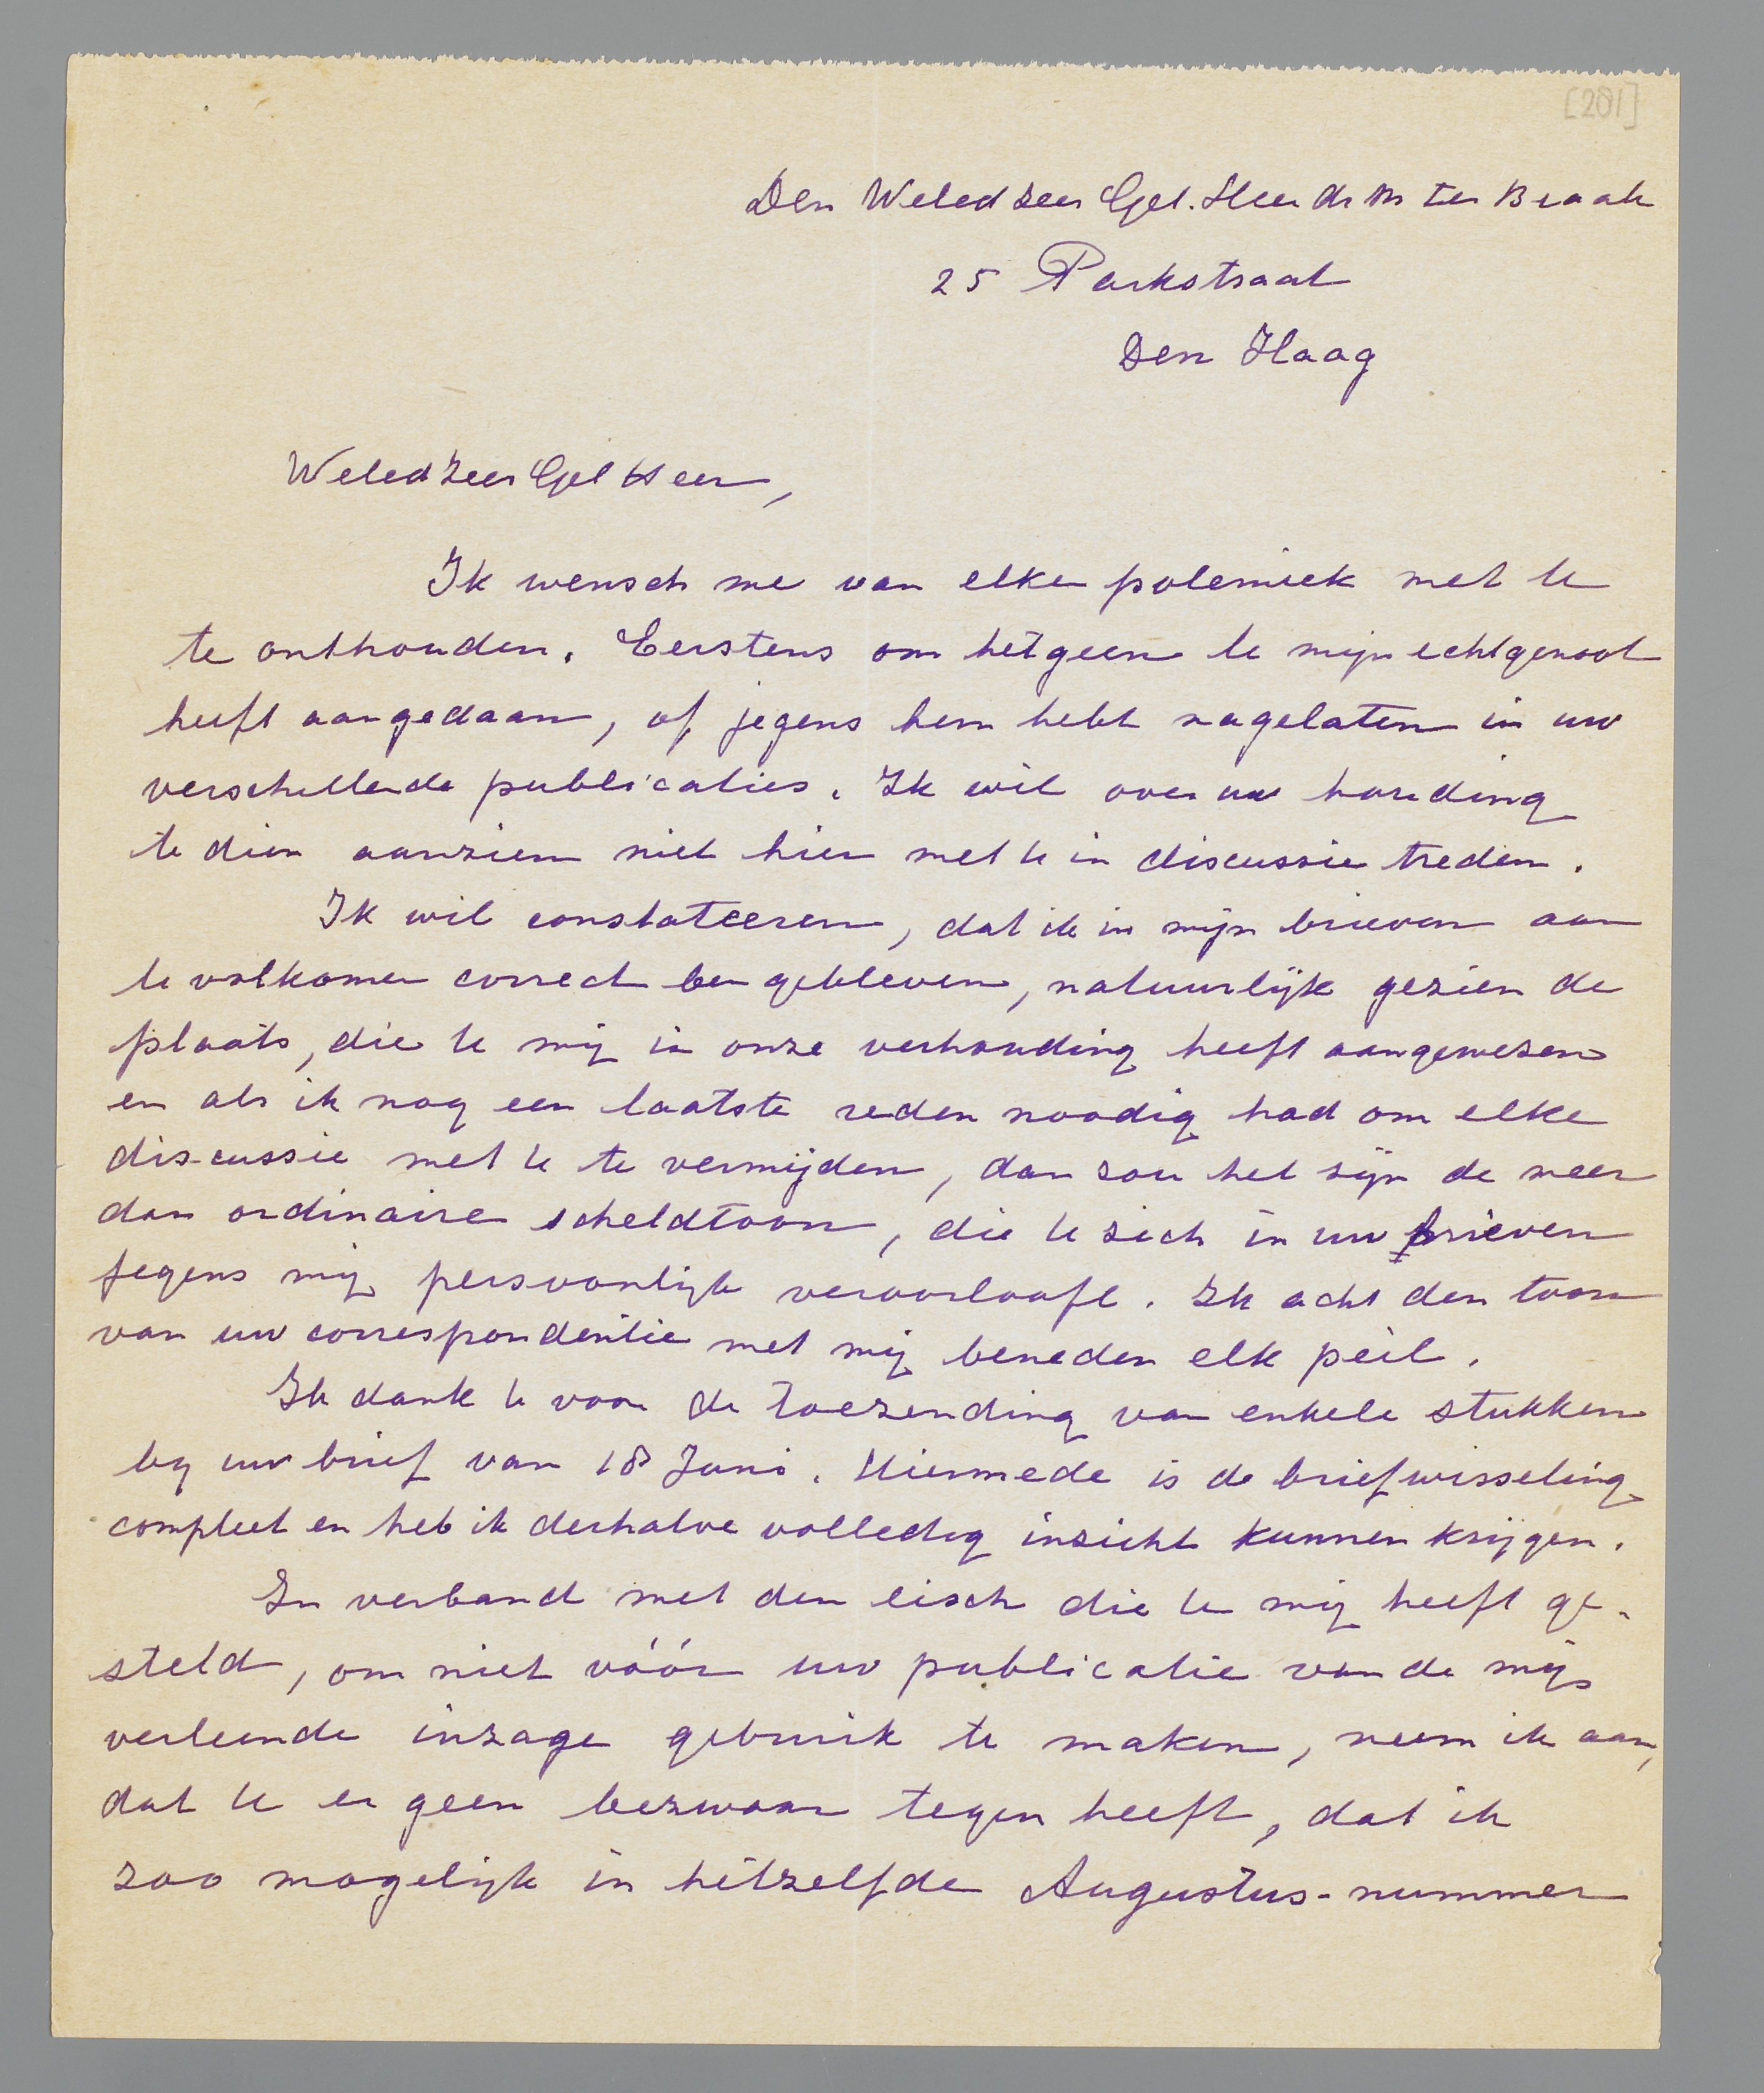 [201]
Den Weled Zeer Gel. Heer dr M ter Braak
25 Parkstraat
Den Haag
Weled Zeer Gel Heer,
Ik wensch me van elke polemiek met U
te onthouden. Eerstens om hetgeen U mijn echtgenoot
heeft aangedaan, of jegens hem hebt nagelaten in uw
verschillende publicaties. Ik wil over uw houding
te dien aanzien niet hier met U in discussie treden.
Ik wil constateeren, dat ik in mijn brieven aan
U volkomen correct ben gebleven, natuurlijk gezien de
plaats, die U mij in onze verhouding heeft aangewezen
en als ik nog een laatste reden noodig had om elke
discussie met U te vermijden, dan zou het zijn de meer
dan ordinaire scheldtoon, die U zich in uw brieven
jegens mij persoonlijk veroorlooft. Ik acht den toon
van uw correspondentie met mij beneden elk peil.
Ik dank U voor de toezending van enkele stukken
bij uw brief van 18 Juni. Hiermede is de briefwisseling
compleet en heb ik derhalve volledig inzicht kunnen krijgen.
In verband met den eisch die U mij heeft ge-
steld, om niet vóór uw publicatie van de mij
verleende inzage gebruik te maken, neem ik aan,
dat U er geen bezwaar tegen heeft, dat ik
zoo mogelijk in hetzelfde Augustus-nummer